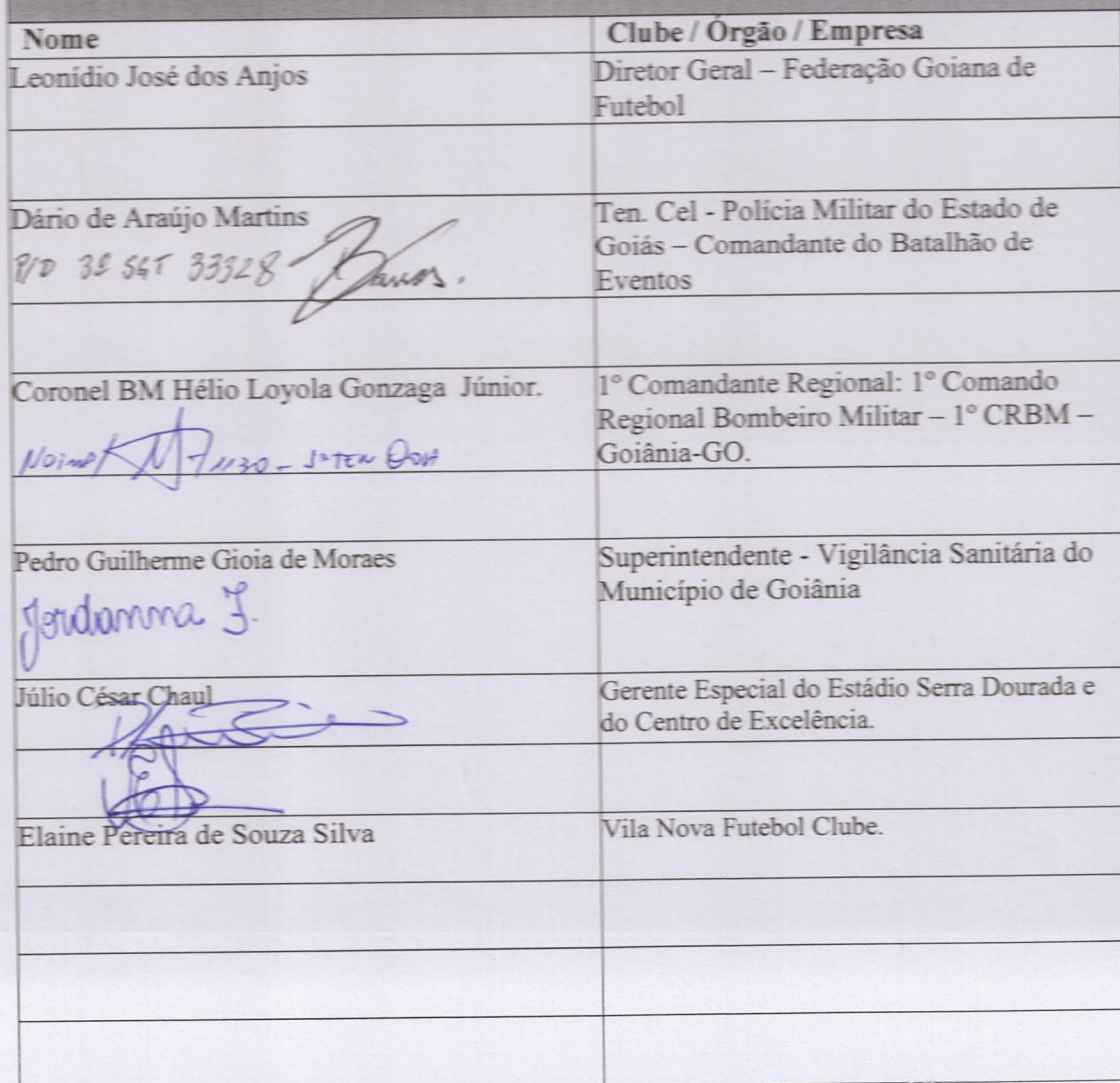 Nome
Clube / Órgão / Empresa
Leonídio José dos Anjos
Diretor Geral – Federação Goiana de
Futebol
Dário de Araújo Martins
P/D 3º SGT 33328
Ten. Cel - Polícia Militar do Estado de
Goiás – Comandante do Batalhão de
Eventos
Coronel BM Hélio Loyola Gonzaga Júnior.
1º Comandante Regional: 1º Comando
Regional Bombeiro Militar – 1º CRBM –
Goiânia-GO.
Pedro Guilherme Gioia de Moraes
Jordanna J.
Superintendente - Vigilância Sanitária do
Município de Goiânia
Júlio César Chaul
Gerente Especial do Estádio Serra Dourada e
do Centro de Excelência.
Elaine Pereira de Souza Silva
Vila Nova Futebol Clube.